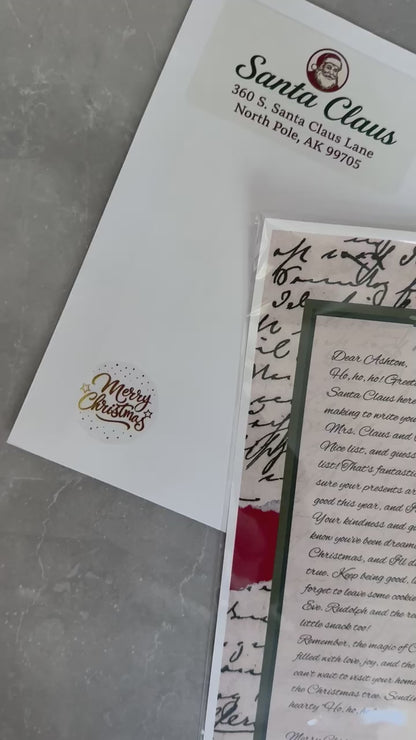 Santa Claus
360 S. Santa Claus Lane
North Pole, AK 99705
Merry
Christmas
Dear Ashton,
Ho, ho, ho! Gree
Santa Claus here
making to write you
Mrs. Claus and
Nice list, and guess
list! That's fantasti
sure your presents a
good this year, and I
Your kindness and g
know you've been drea
Christmas, and I'll d
true. Keep being good,
forget to leave some cookie
Eve. Rudolph and the re
little snack too!
Remember, the magic of C
filled with love, joy, and the
can't wait to visit your home
the Christmas tree. Sendi
hearty "Ho, ho, h